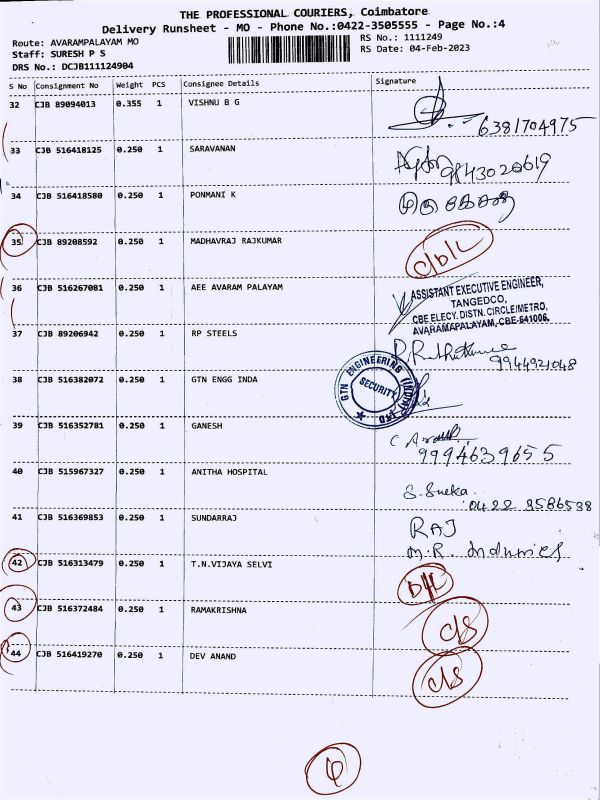 THE PROFESSIONAL COURIERS, Coimbatore
Delivery Runsheet - MO - Phone No.:0422-3505555 - Page No.:4
Route: AVARAMPALAYAM MO
RS No.: 1111249
Staff: SURESH P S
RS Date: 04-Feb-2023
DRS No.: DCJB111124904
S No Consignment No Weight PCS Consignee Details Signature
32 CJB 89094013 0.355 1 VISHNU B G
6381704975
33 CJB 516418125 0.250 1 SARAVANAN
9843020619
34 CJB 516418580 0.250 1 PONMANI K
35 CJB 89208592 0.250 1 MADHAVRAJ RAJKUMAR
C/D/L
36 CJB 516267081 0.250 1 AEE AVARAM PALAYAM
ASSISTANT EXECUTIVE ENGINEER,
TANGEDCO,
CBE ELECY. DISTN. CIRCLE/METRO,
AVARAMAPALAYAM, CBE-641006.
37 CJB 89206942 0.250 1 RP STEELS
9944921048
38 CJB 516382072 0.250 1 GTN ENGG INDA
GTN ENGINEERING (INDIA) LTD
SECURITY
39 CJB 516352781 0.250 1 GANESH
9994639655
40 CJB 515967327 0.250 1 ANITHA HOSPITAL
S. Sneka
0422 2586538
41 CJB 516369853 0.250 1 SUNDARRAJ
RAJ
M.R. Industries
42 CJB 516313479 0.250 1 T.N.VIJAYA SELVI
D/L
43 CJB 516372484 0.250 1 RAMAKRISHNA
C/S
44 CJB 516419270 0.250 1 DEV ANAND
C/S